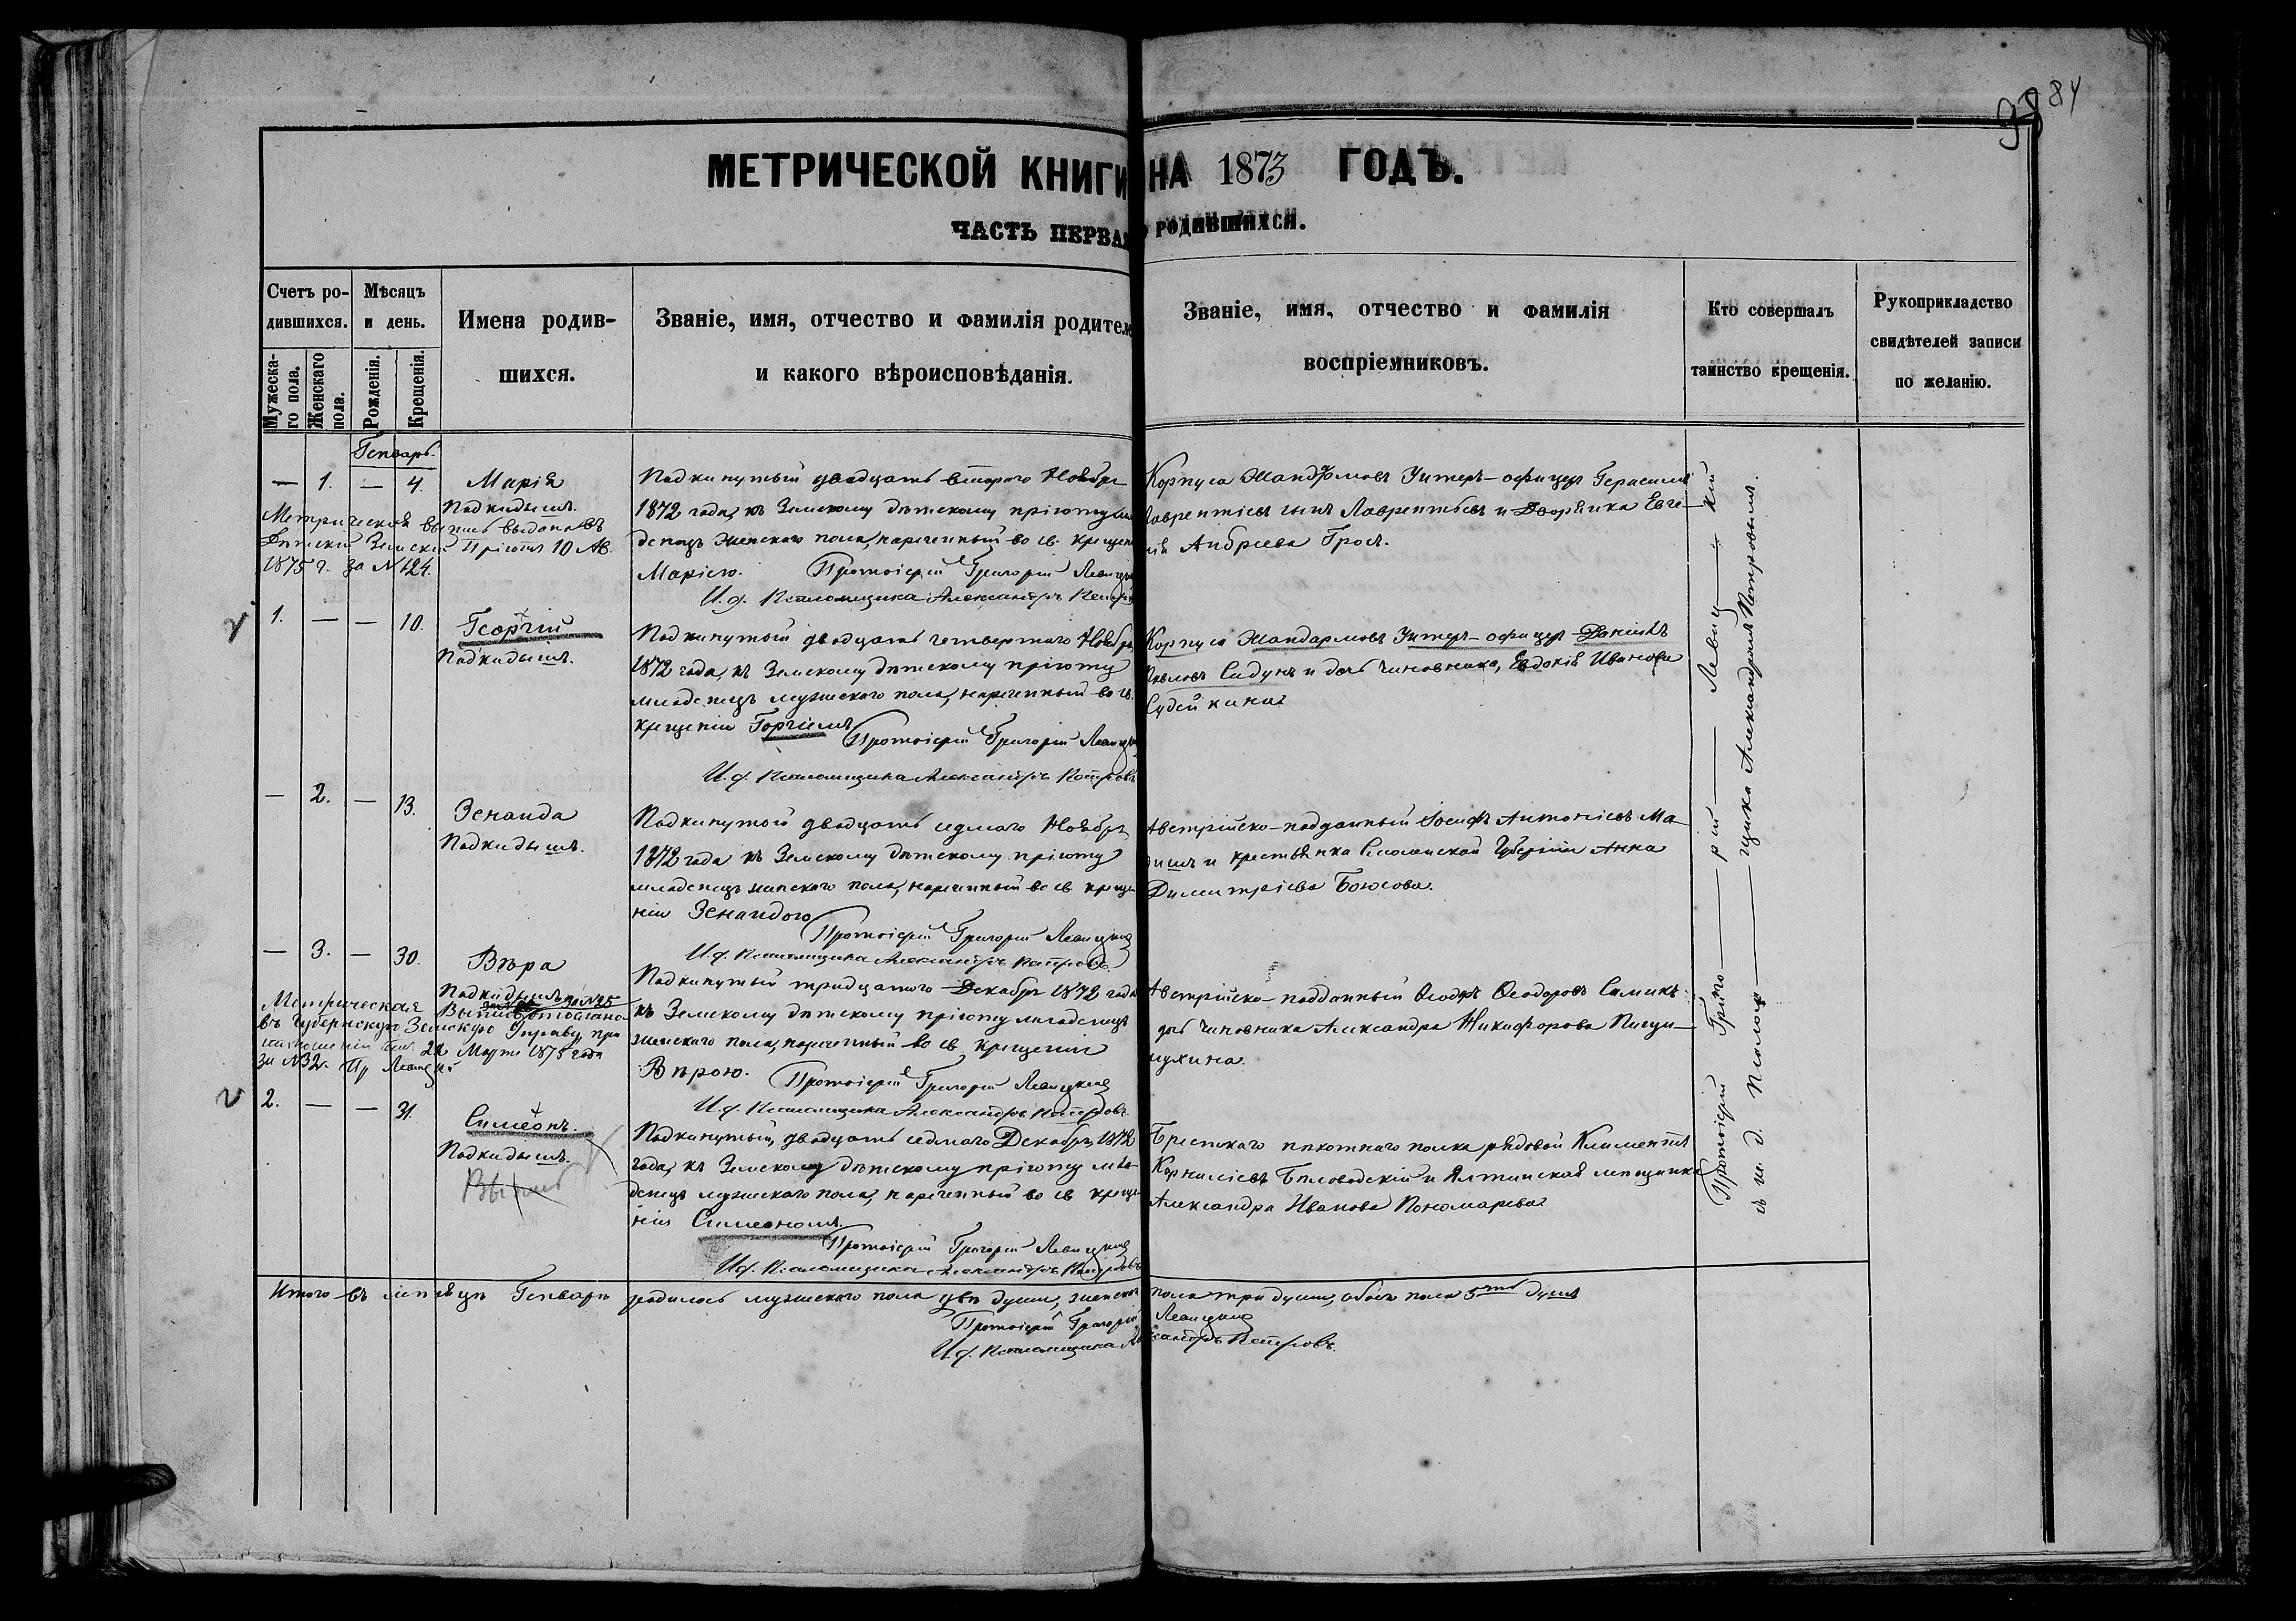 98 84
МЕТРИЧЕСКОЙ КНИГИ НА 1873 ГОДЪ.
ЧАСТЬ ПЕРВАЯ РОДИВШИХСЯ.
Счетъ ро-
дившихся.
Мужеска-
го пола.
Женскаго
пола.
Мѣсяцъ
и день.
Рожденія.
Крещенія.
Имена родив-
шихся.
Званіе, имя, отчество и фамилія родителе
и какого вѣроисповѣданія.
Званіе, имя, отчество и фамилія
воспріемниковъ.
Кто совершалъ
таинство крещенія.
Рукоприкладство
свидѣтелей записи
по желанію.
Генварь.
— 1. — 4.
Марія
Подкидышъ.
Метрической выпись выдана въ
Дѣтскій Земскій Пріютъ 10 Ав.
1875 г. за № 124.
Подкинутый двадцать втораго Ноября
1872 года, къ Земскому дѣтскому пріюту мла
денецъ женскаго пола, нареченный во св. крещен
Маріею. Протоіерей Григорій Левицкій
И. д. Псаломщика Александръ Петров
Корпуса Жандармовъ Унтеръ-офицеръ Герасимъ
Лаврентіевъ сынъ Лаврентьевъ и Дворянка Евге-
нія Андреева Гросъ.
1. — — 10.
Георгій
Подкидышъ.
Подкинутый двадцать четвертаго Ноября
1872 года, къ Земскому дѣтскому пріюту
младенецъ мужескаго пола, нареченный во св.
крещеніи Горгіемъ
Протоіерей Григорій Левицкій
И. д. Псаломщика Александръ Петровъ
Корпуса Жандармовъ Унтеръ-офицеръ Даніилъ
Павловъ Сидунъ и дочь чиновника, Евдокія Иванова
Судейкина
— 2. — 13.
Зенаида
Подкидышъ.
Подкинутой двадцать седмаго Ноября
1872 года къ Земскому дѣтскому пріюту
младенецъ женскаго пола, нареченный во св. креще-
ніи Зенаидою
Протоіерей Григорій Левицкій
И. д. Псаломщика Александръ Петровъ.
Австрійско-подданный Іосифъ Антоніевъ Ма-
дишъ и крестьянка Смоленской Губерніи Анна
Димитріева Боюсова.
— 3. — 30.
Вѣра
Подкидышъ
Метрическая Выпись
въ Губернскую Земскую Управу при
отношеніи 22 Марта 1875 года
за №32. Пр Левицкій
Подкинутый тридцатаго Декабря 1872 года
къ Земскому дѣтскому пріюту младенецъ
женскаго пола, нареченный во св крещеніи
Вѣрою. Протоіерей Григорій Левицкій
И. д. Псаломщика Александръ Петровъ.
Австрійско-подданный Ѳеодоръ Ѳеодоровъ Симикъ
дочь чиновника Александра Никифорова Пищи-
мухина.
2. — — 31.
Симеонъ.
Подкидышъ.
Выпись
Подкинутый, двадцать седмаго Декабря 1872
года, къ Земскому дѣтскому пріюту мла-
денецъ мужескаго пола, нареченный во св креще-
ніи Симеономъ.
Протоіерей Григорій Левицкій
И.д. Псаломщика Александръ Петровъ
Брестскаго пѣхотнаго полка рядовой Климентій
Корниліевъ Бѣловодскій и Ялтинская мѣщанка
Александра Иванова Пономарева
Протоіерей Григорій Левицкій
съ и. д. Псаломщика Александромъ Петровымъ.
Итого въ мѣсяцѣ Генварѣ родилось мужескаго пола двѣ души, женскаго пола три души, обоего пола 5ть душъ
Протоіерей Григорій Левицкій
И.д. Псаломщика Александръ Петровъ.